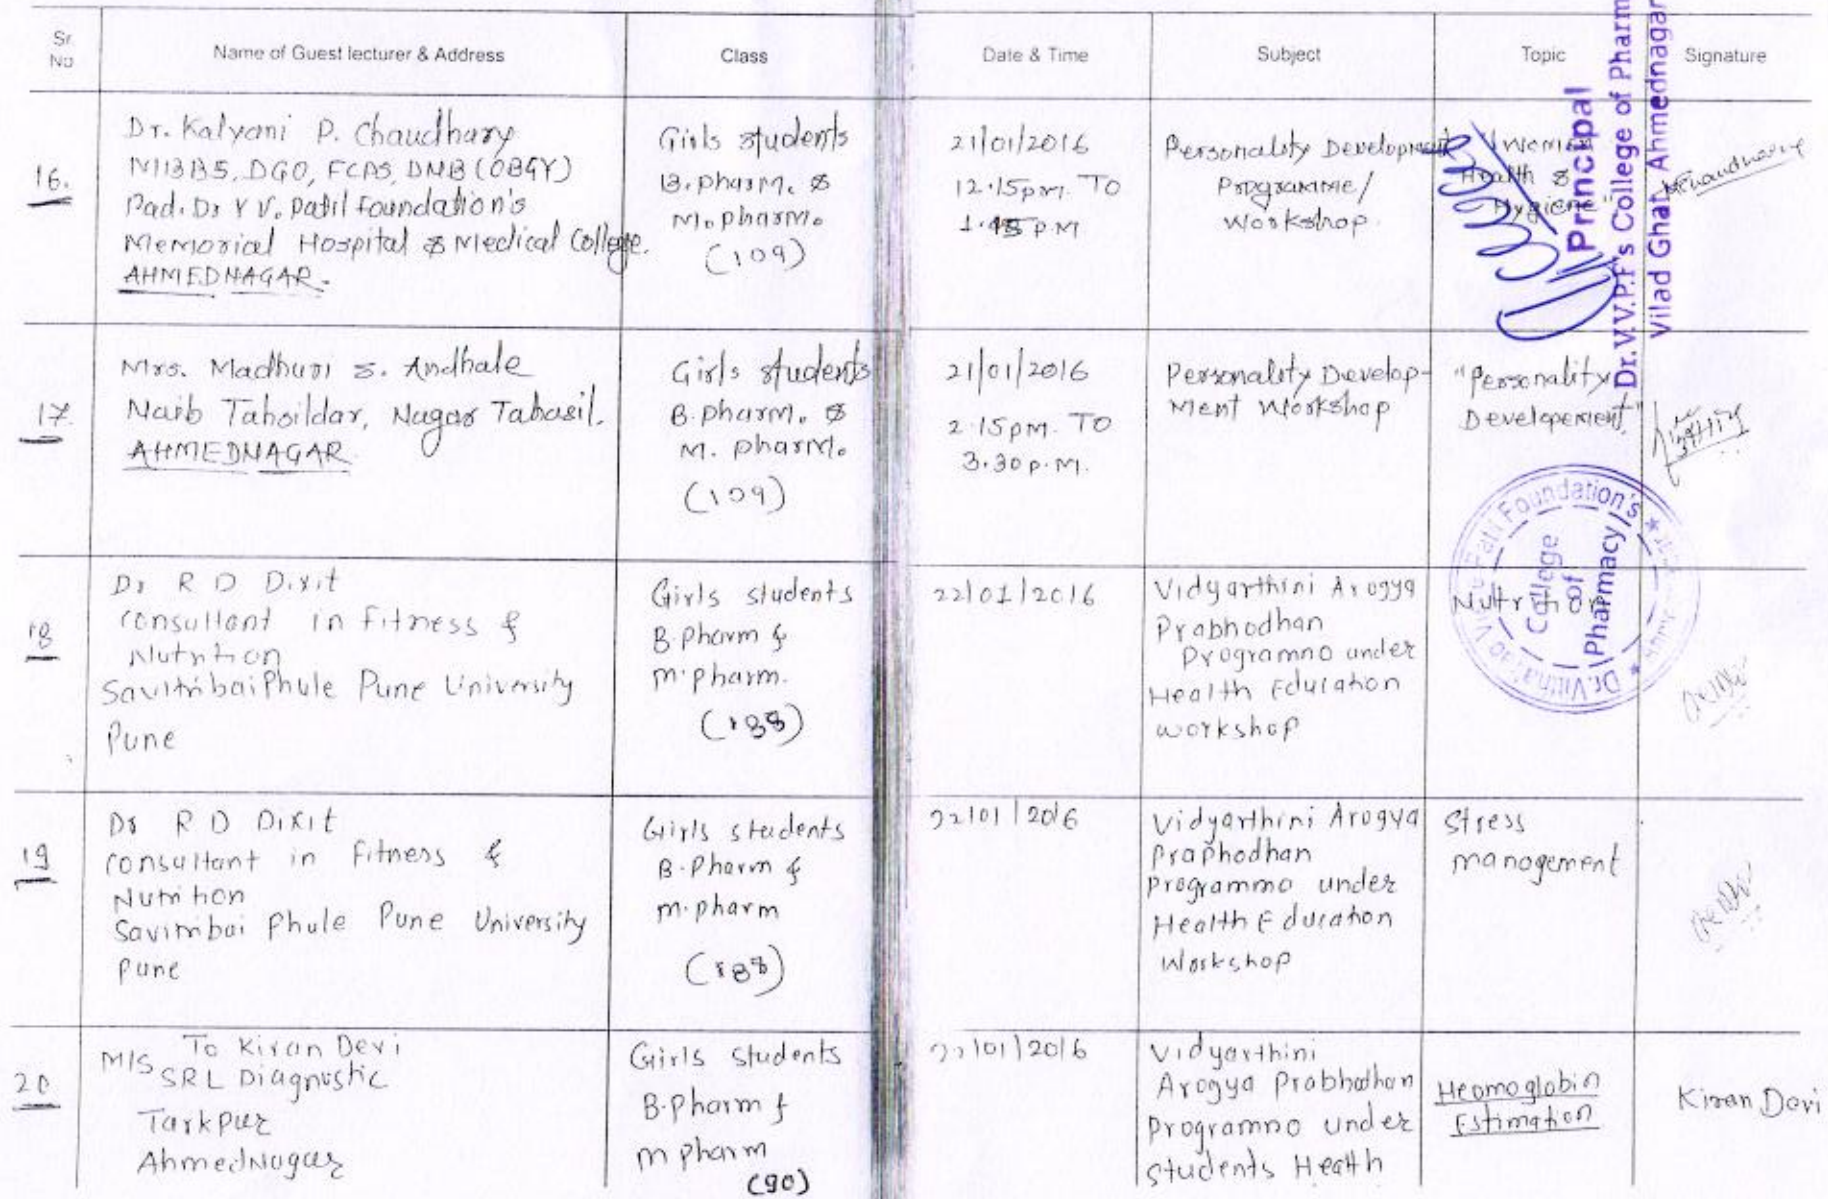 Sr. No
Name of Guest lecturer & Address
Class
Date & Time
Subject
Topic
Signature
16.
Dr. Kalyani P. Chaudhary
MBBS, DGO, FCPS, DNB (OBGY)
Pad. Dr V V. Patil foundation's
Memorial Hospital & Medical College.
AHMEDNAGAR.
Girls students
B. pharm. &
M. pharm.
(109)
21/01/2016
12.15pm. TO
1.45 P.M
Personality Development
Programme/
Workshop.
Health &
Hygiene"
Chaudhary
Principal
Dr.V.V.P.F's College of Pharm
Vilad Ghat, Ahmednagar
17.
Mrs. Madhuri S. Andhale
Naib Tahsildar, Nagar Tahasil.
AHMEDNAGAR.
Girls students
B. pharm. &
M. pharm.
(109)
21/01/2016
2.15pm. TO
3.30 p.m.
Personality Develop-
ment Workshop
"Personality
Developement"
Foundation's
College
of
Pharmacy
18
Dr R D Dixit
consultant in Fitness &
Nutrition
Savitribai Phule Pune University
Pune
Girls students
B.Pharm &
m.pharm.
22/01/2016
Vidyarthini Arogya
Prabhodhan
Programno under
Health Education
workshop
Nutrition
19
Dr R D Dixit
consultant in Fitness &
Nutrition
Savitribai Phule Pune University
pune
Girls students
B.Pharm &
m.pharm
22/01/2016
Vidyarthini Arogya
Praphodhan
programmo under
Health Education
Workshop
Stress
management
20
M/S To Kiran Devi
SRL Diagnostic
Tarkpur
AhmedNagar
Girls students
B.Pharm &
m pharm
(90)
22/01/2016
Vidyarthini
Arogya Prabhodhan
programno under
students Health
Heamoglobin
Estimation
Kiran Devi